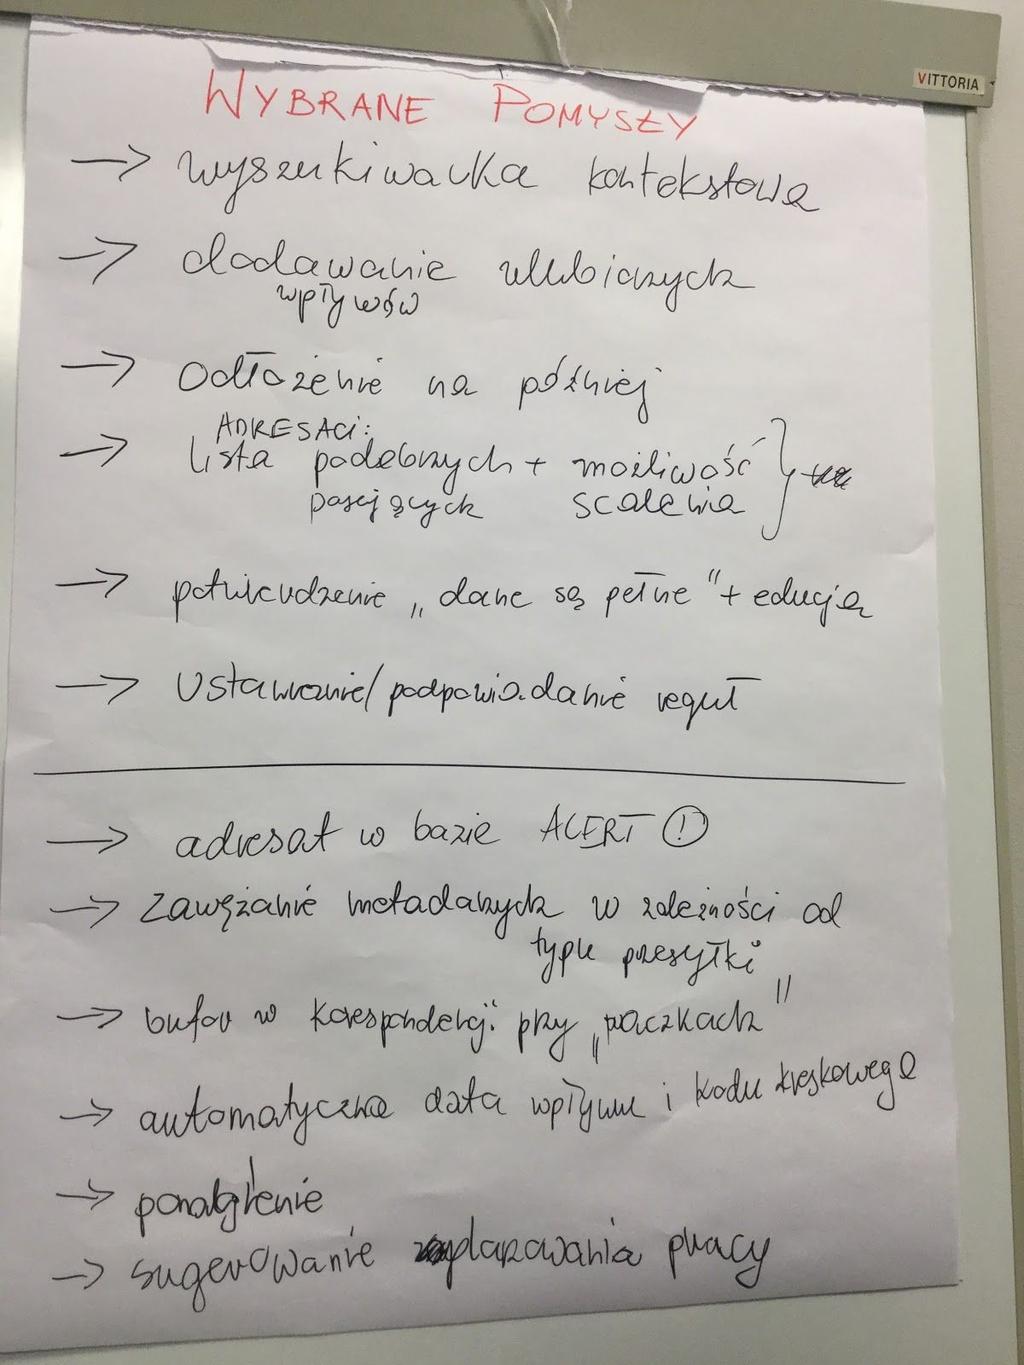 VITTORIA
WYBRANE POMYSŁY
→ wyszukiwarka kontekstowa
→ dodawanie ulubionych
wpływów
→ odłożenie na później
ADRESACI:
→ lista podobnych + możliwość }
pasujących scalenia
→ potwierdzenie „dane są pełne" + edycja
→ Ustawianie/podpowiadanie reguł
→ adresat w bazie ALERT !
→ Zawężanie metadanych w zależności od
typu przesyłki
→ bufor w korespondencji przy „paczkach"
→ automatyczna data wpływu i kodu kreskowego
→ ponaglenie
→ sugerowanie planowania pracy